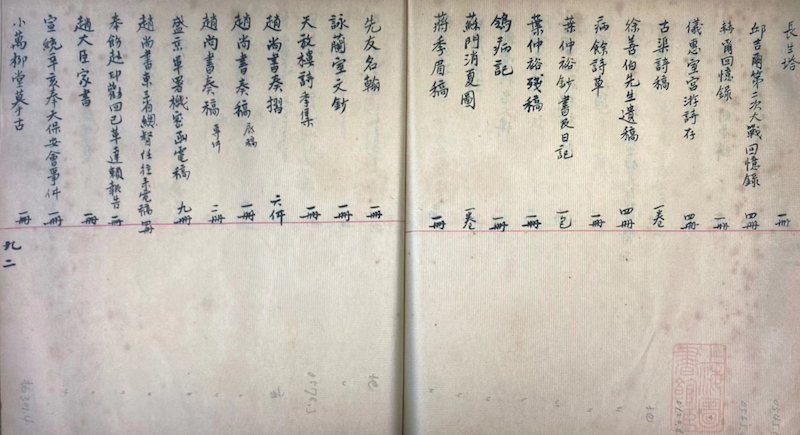 長生塔 一冊
邱吉爾第二次大戰回憶錄 四冊
赫爾回憶錄 一冊
儀恩室宮游詩存 四冊
古渠詩稿 一卷
徐善伯先生遺稿 四冊
病餘詩草 一冊
葉仲裕鈔書及日記 一包
葉仲裕殘稿 一冊
鴿病記 一冊
蘇門消夏圖 一卷
蔣季眉稿 一冊
先友名翰 一冊
詠蘭室文鈔 一冊
天放樓詩季集 一冊
趙尚書奏摺 六件
趙尚書奏稿 一冊
趙尚書奏稿 二冊
盛京軍署機密函電稿 九冊
趙尚書東三省總督任往來電稿
奉飭赴印勸回已革達賴報告 一冊
趙大臣家書 一冊
宣統辛亥奉天保安會事件 一冊
小萬柳堂摹古 一冊
九二